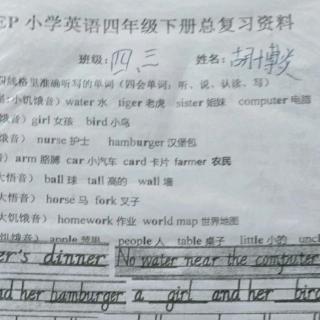 EP 小学英语四年级下册总复习资料
班级: 四、三 姓名: 胡博
四线格里准确听写的单词(四会单词:听、说、认读、写)
:小饥饿音)water 水 tiger 老虎 sister 姐妹 computer 电脑
饿音)girl 女孩 bird 小鸟
饿音) nurse 护士 hamburger 汉堡包
)arm 胳膊 car 小汽车 card 卡片 farmer 农民
大悟音)ball 球 tall 高的 wall 墙
大悟音)horse 马 fork 叉子
大饥饿音)homework 作业 world map 世界地图
饥饿音) apple 苹果 people 人 table 桌子 little 小的 uncl
er's dinner No water near the computer
nd her hamburger a girl and her bird